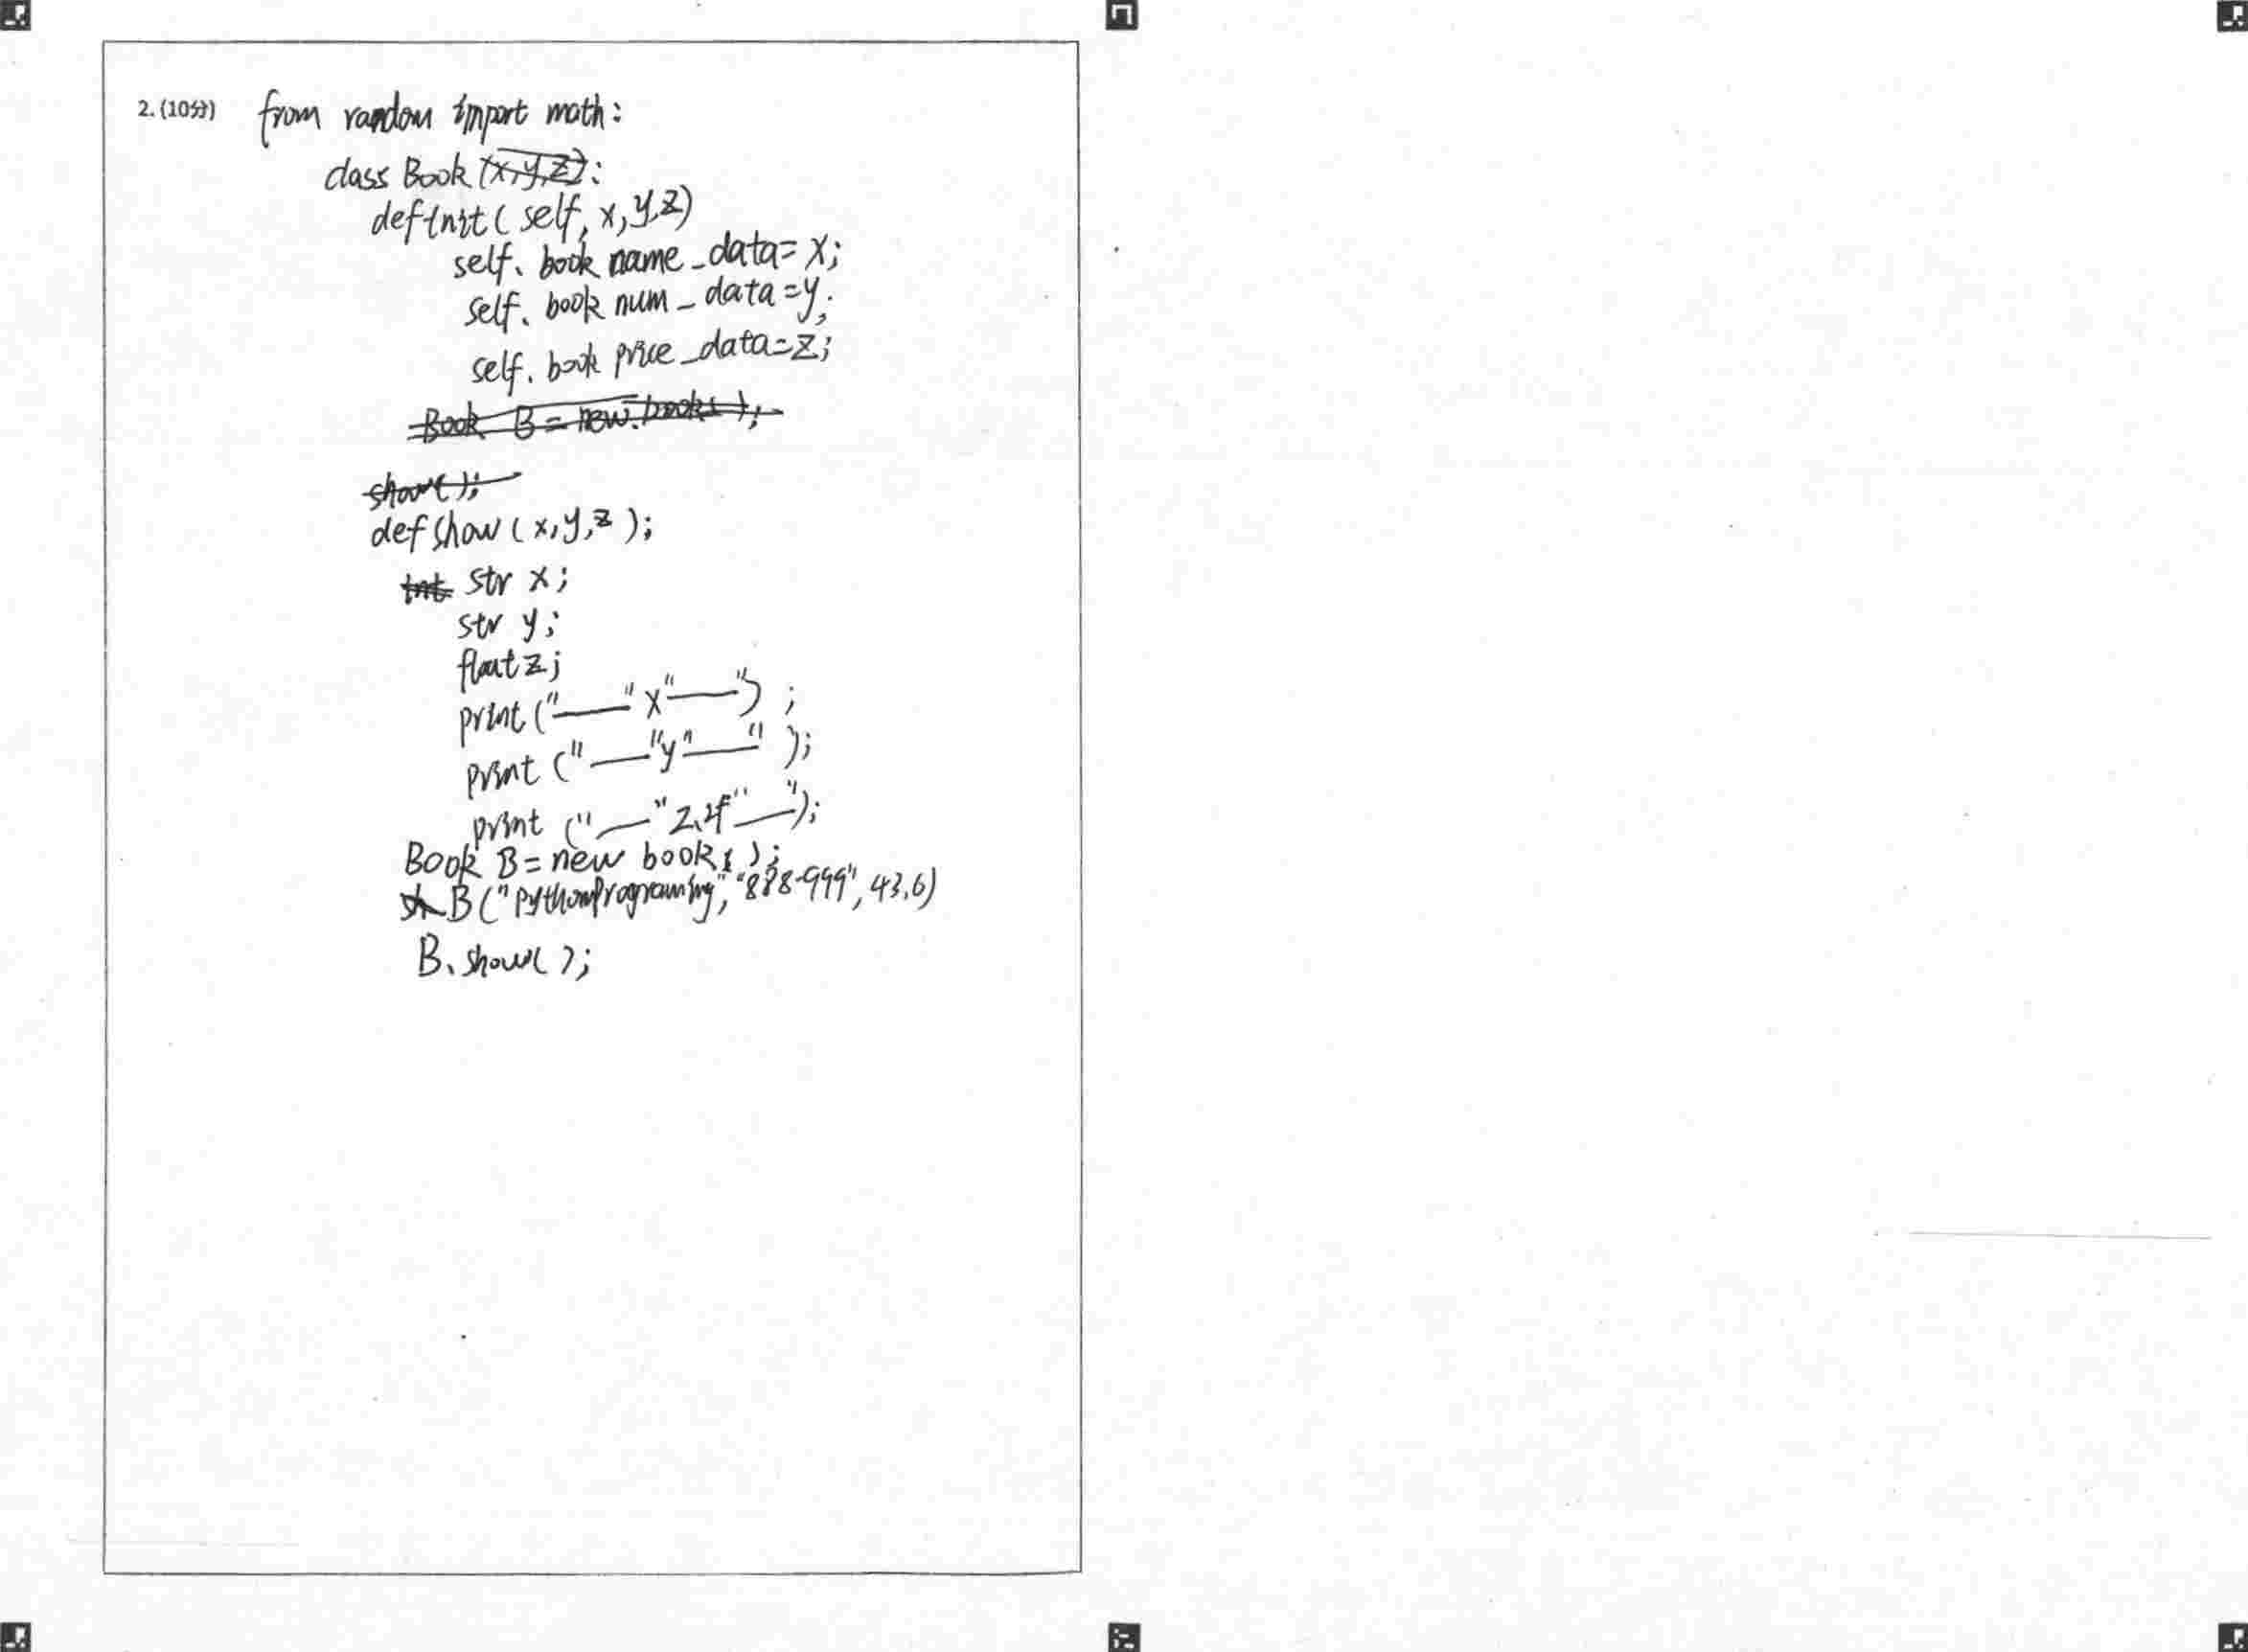 2. (10分) from random import math:
class Book (x,y,z):
def init ( self, x, y, z)
self. book name_data= x;
self. book num_data =y;
self. book price_data=z;
Book B = new. books );
show( );
def show ( x, y, z );
int str x;
str y;
float z;
print ("——" x"——") ;
print ("——"y"——" );
print ("——" 2.4f"——");
Book B = new book( );
B ("PythonPrograming", "888-999", 43.6)
B. show( );